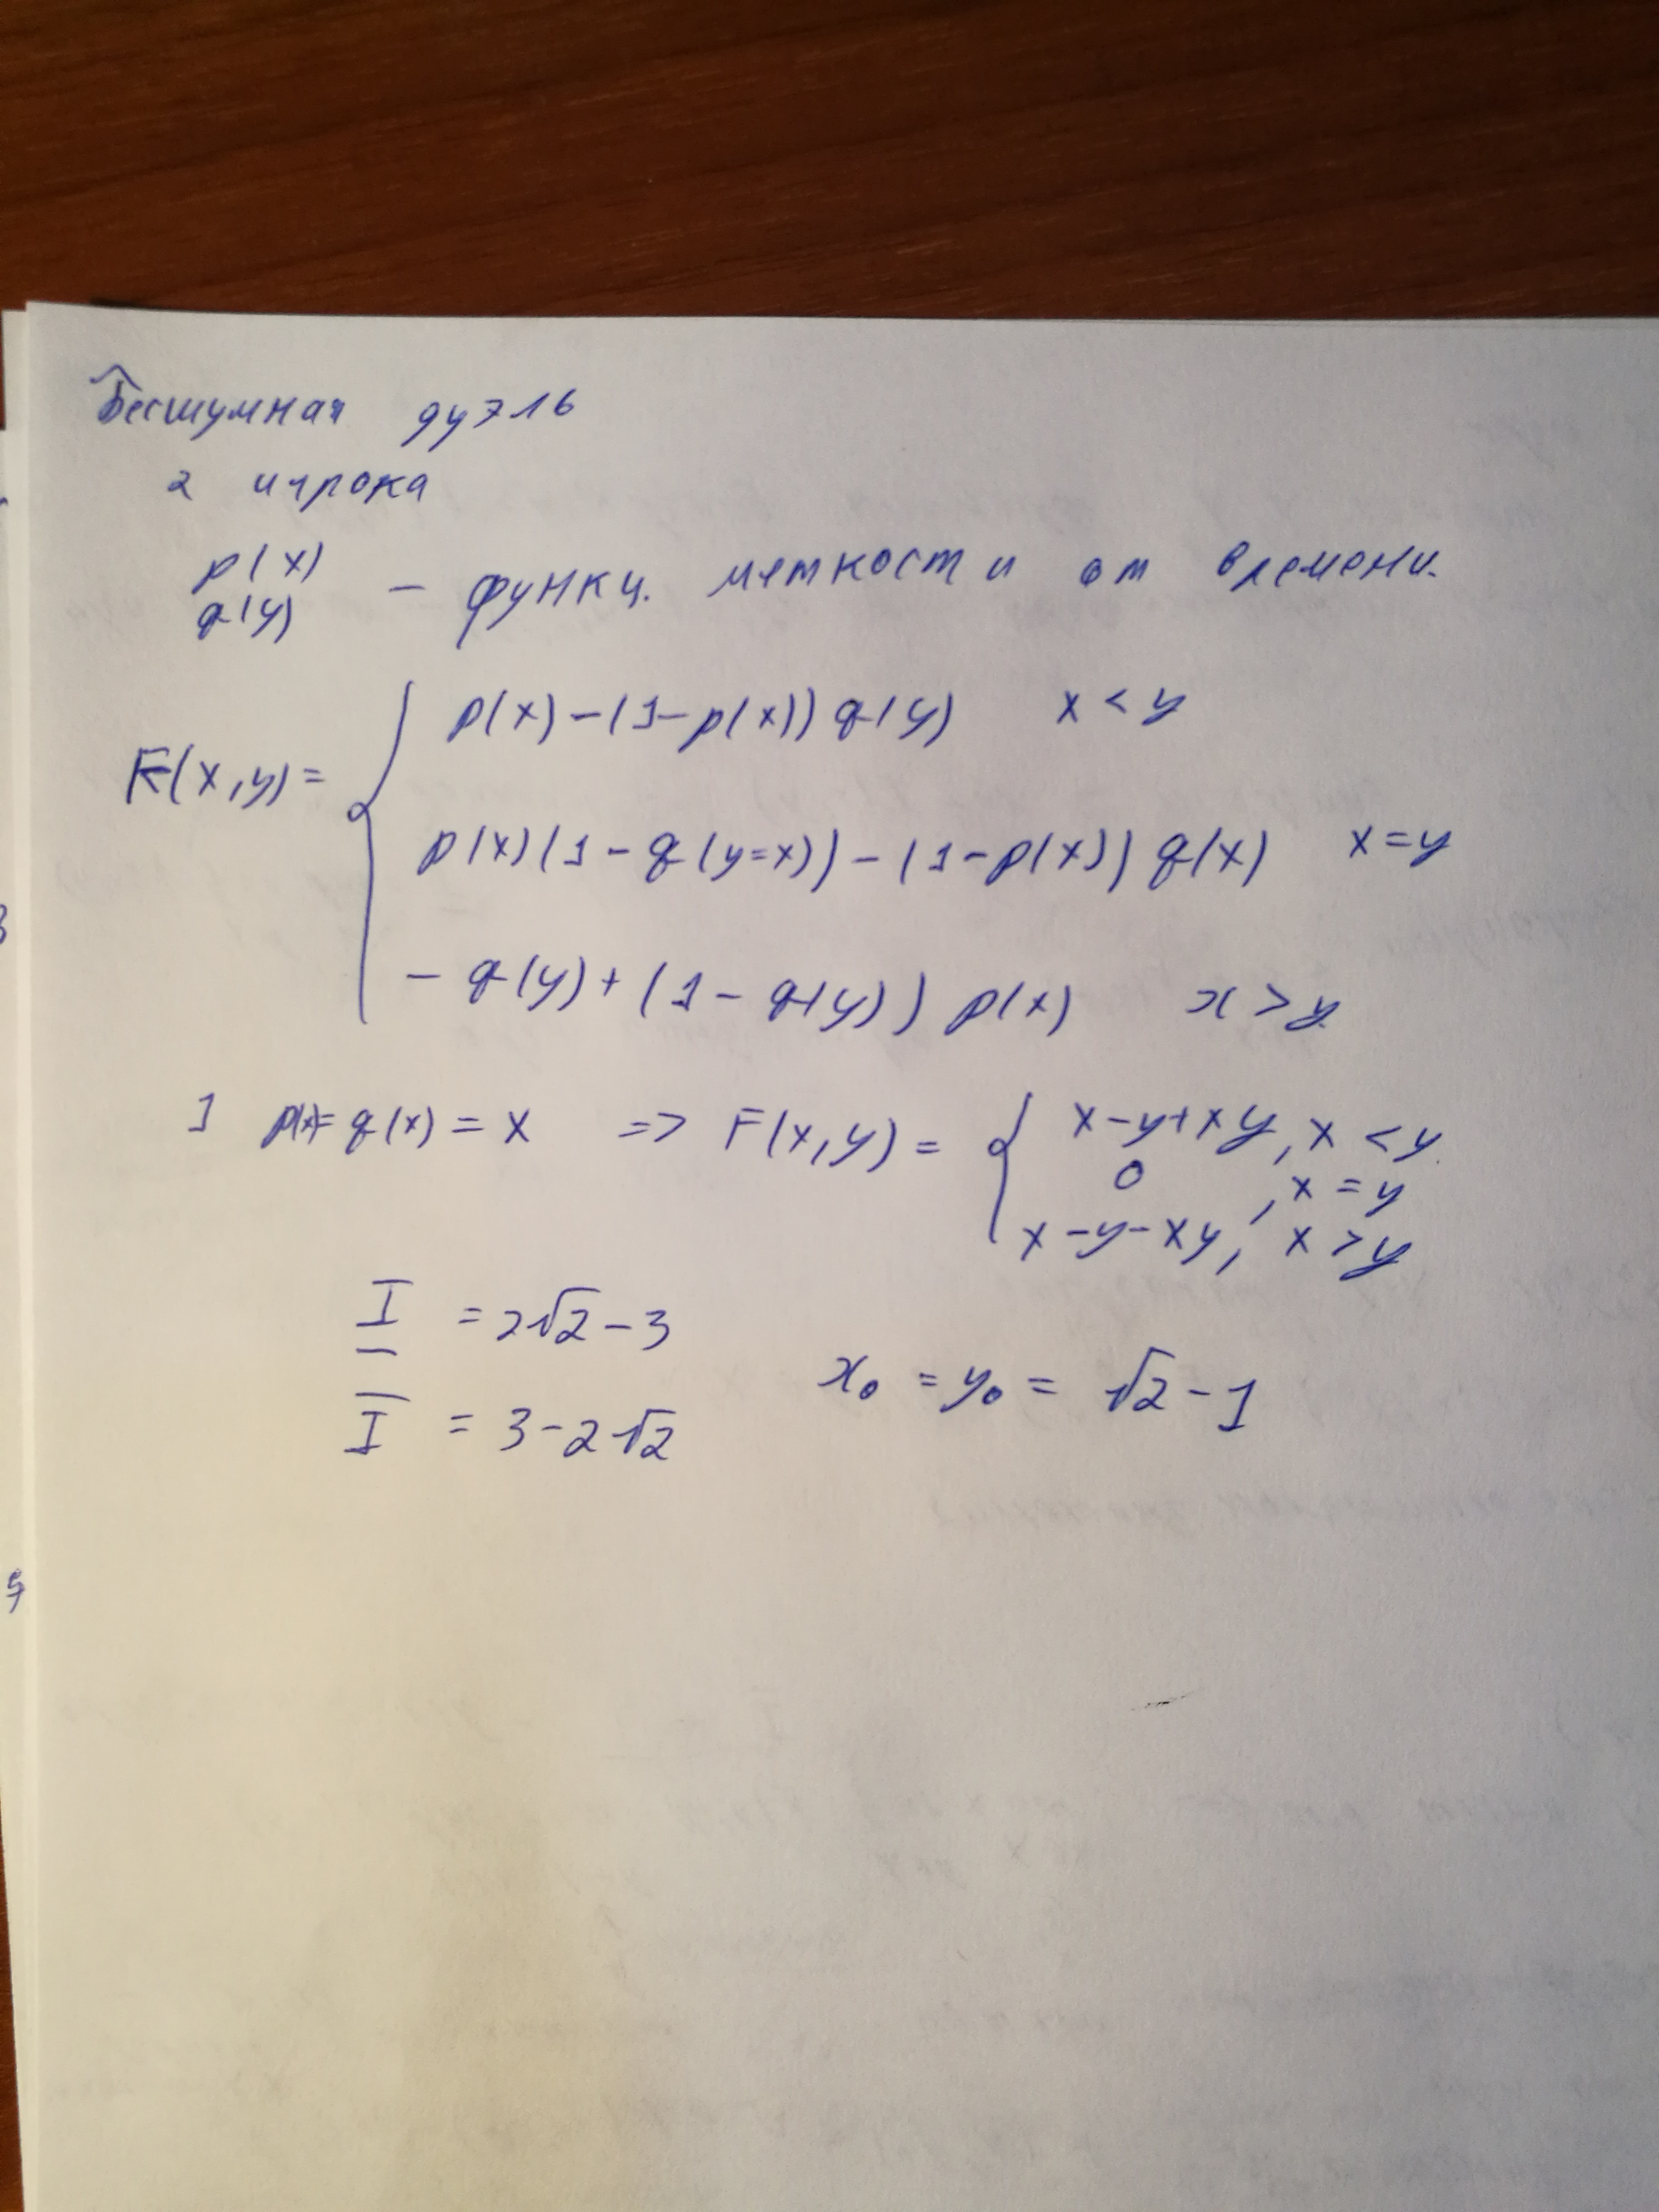 Бесшумная дуэль
2 игрока
p(x)
q(y) – функц. меткости от времени.
p(x)-(1-p(x))q(y) x<y
F(x,y)=
p(x)(1-q(y=x))-(1-p(x))q(x) x=y
-q(y)+(1-q(y))p(x) x>y
1 p(x)=q(x)=x => F(x,y)= { x-y+xy, x<y
0, x=y
x-y-xy, x>y
I = 2√2-3
x₀=y₀=√2-1
I = 3-2√2